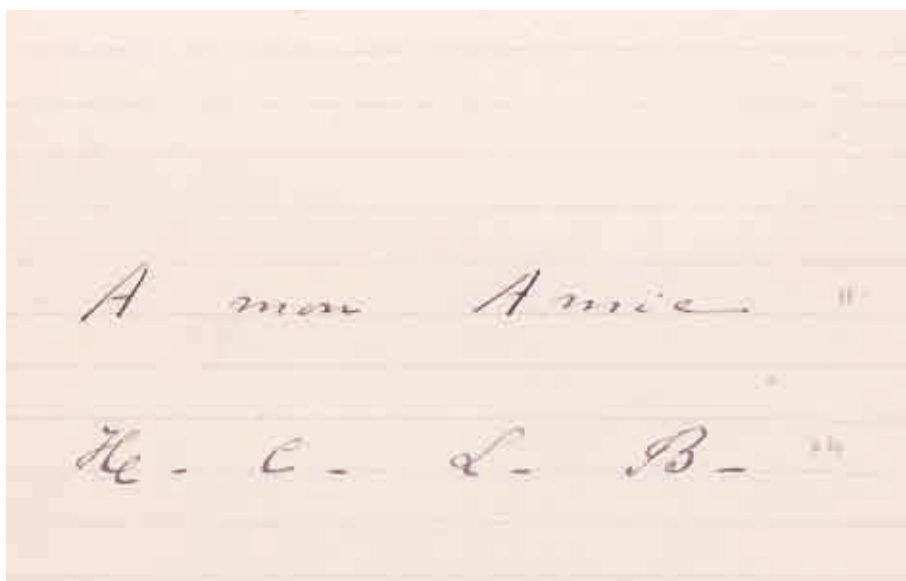 A mon Amie
He - C - L - B -